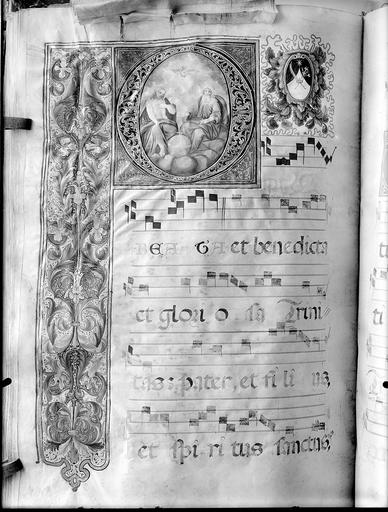 BEA GA et benedicta
et glori o sa Trini
tas: pater, et fi li us,
et spi ri tus sanctus,